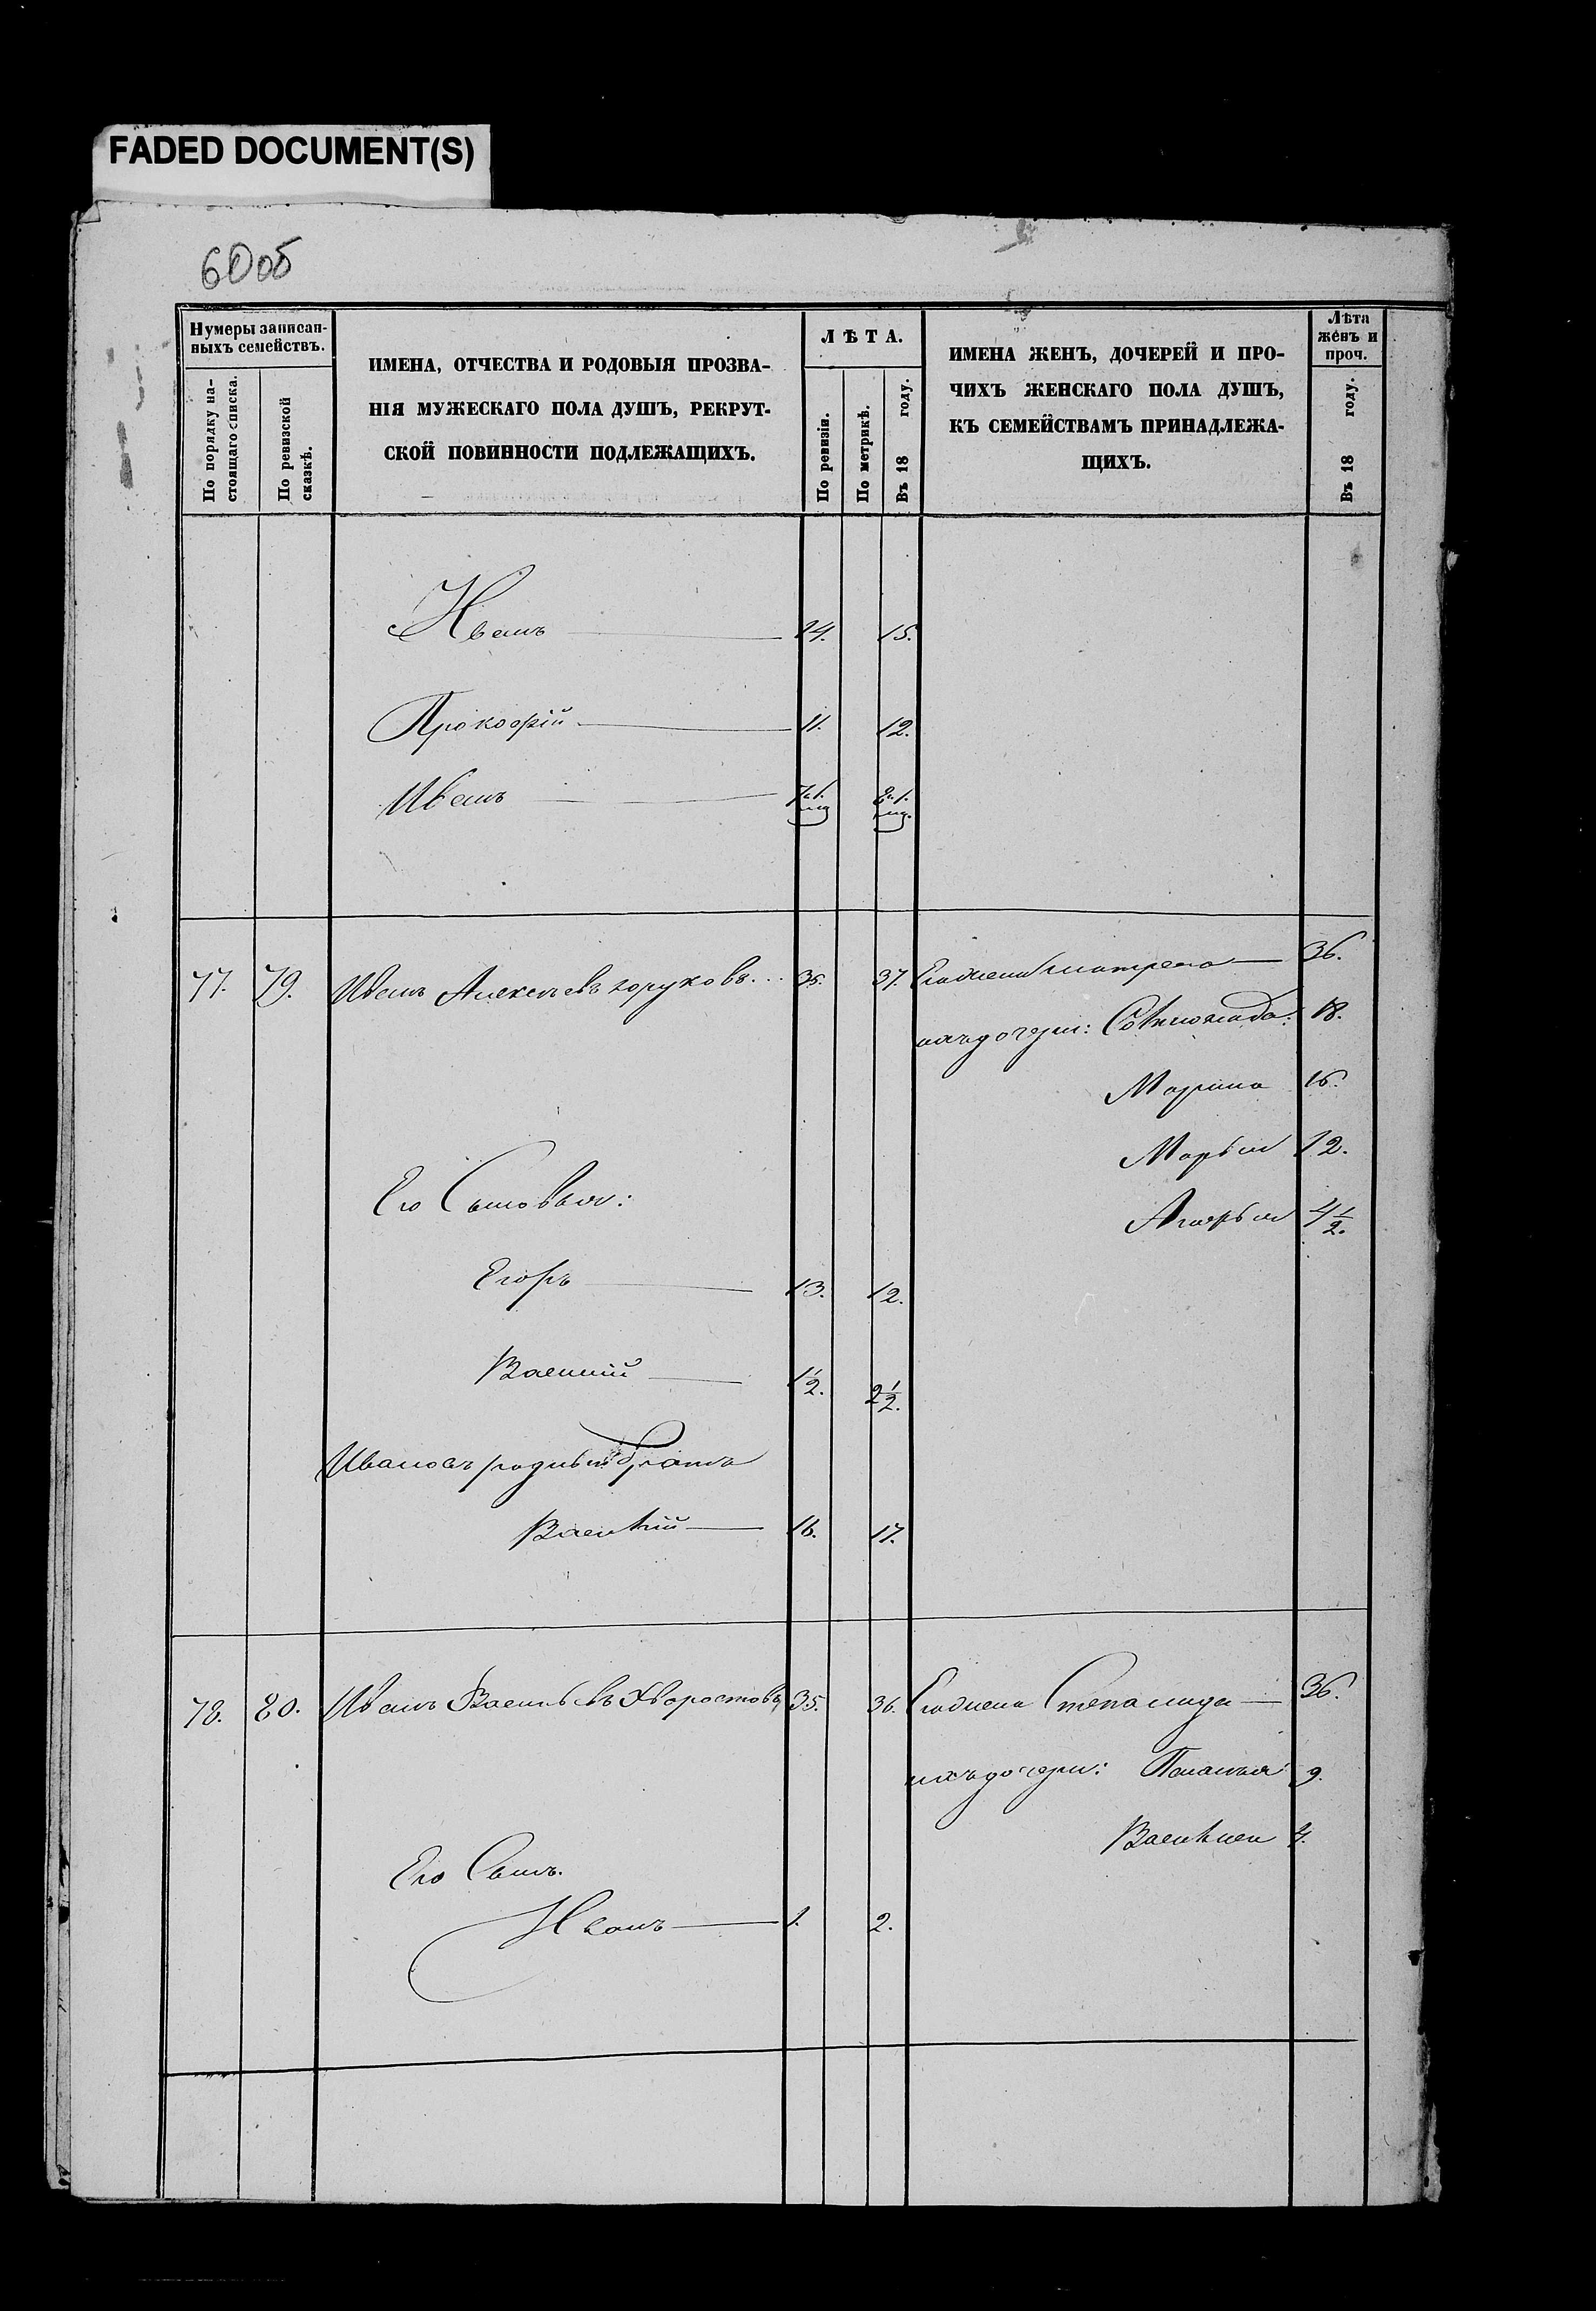 FADED DOCUMENT(S)
60об
Нумеры записан-
ныхъ семействъ.
По порядку на-
стоящаго списка.
По ревизской
сказкѣ.
ИМЕНА, ОТЧЕСТВА И РОДОВЫЯ ПРОЗВА-
НІЯ МУЖЕСКАГО ПОЛА ДУШЪ, РЕКРУТ-
СКОЙ ПОВИННОСТИ ПОДЛЕЖАЩИХЪ.
ЛѢТА.
По ревизіи.
По метрикѣ.
Въ 18 году.
ИМЕНА ЖЕНЪ, ДОЧЕРЕЙ И ПРО-
ЧИХЪ ЖЕНСКАГО ПОЛА ДУШЪ,
КЪ СЕМЕЙСТВАМЪ ПРИНАДЛЕЖА-
ЩИХЪ.
Лѣта
женъ и
проч.
Въ 18 году.
Иванъ 14. 15.
Прокофій 11. 12.
Иванъ
77. 79. Иванъ Алексѣевъ 37. Его жена Матрена 36.
ихъ дочери: 18.
Марина 16.
Марья 12.
4½.
Его Сыновья:
Егоръ 13. 12.
Василій 1½. 2½.
Ивановъ родный братъ
Василій 16. 17.
78. 80. Иванъ Васильевъ Хворостовъ 35. 36. Его жена Степанида 36.
ихъ дочери: Пелагея 9.
Василиса 4.
Его Сынъ.
Иванъ 1. 2.